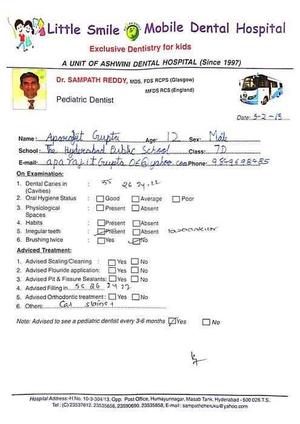 Little Smile Mobile Dental Hospital
Exclusive Dentistry for kids
A UNIT OF ASHWINI DENTAL HOSPITAL (Since 1997)
Dr. SAMPATH REDDY, MDS, FDS RCPS (Glasgow)
MFDS RCS (England)
Pediatric Dentist
Date: 5-2-15
Name: Gupta Age: 12 Sex: Male
School: The Hyderabad Public School Class: 7D
E-mail: Phone:
On Examination:
1. Dental Caries in : 55 26 24,22
(Cavities)
2. Oral Hygiene Status : Good Average Poor
3. Physiological : Present Absent
Spaces
4. Habits : Present Absent
5. Irregular teeth : Present Absent
6. Brushing twice : Yes No
Adviced Treatment:
1. Advised Scaling/Cleaning : Yes No
2. Advised Flouride application: Yes No
3. Advised Pit & Fissure Sealants: Yes No
4. Advised Filling in 55 26 24 22
5. Advised Orthodontic treatment : Yes No
6. Others:
Note: Advised to see a pediatric dentist every 3-6 months Yes No
Hospital Address:-H.No. 10-3-304/13, Opp. Post Office, Humayunnagar, Masab Tank, Hyderabad - 500 028 T.S.
Tel: (C) 23537612, 23535858, 23590690, 23535858, E-mail : sampathchenuku@yahoo.com